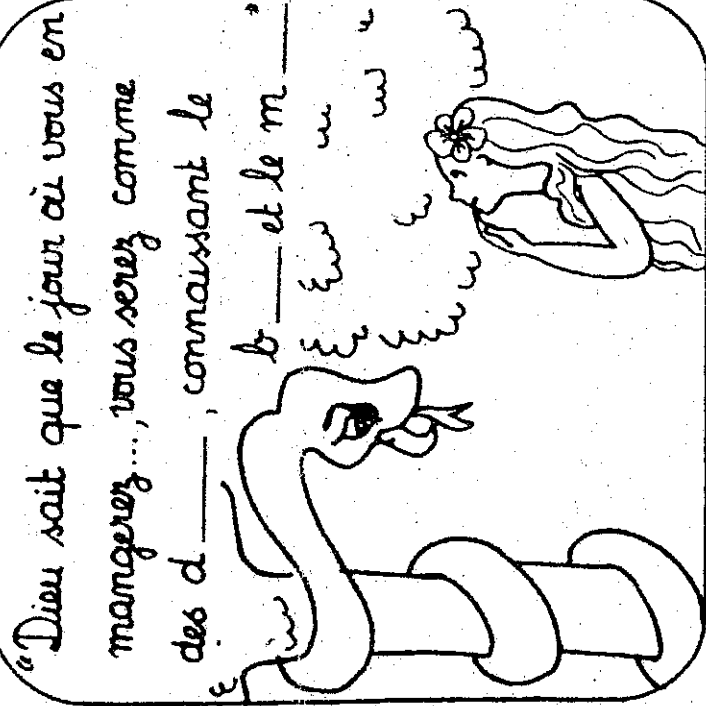 "Dieu sait que le jour où vous en
mangerez..., vous serez comme
des d____, connaissant le
b____ et le m____"